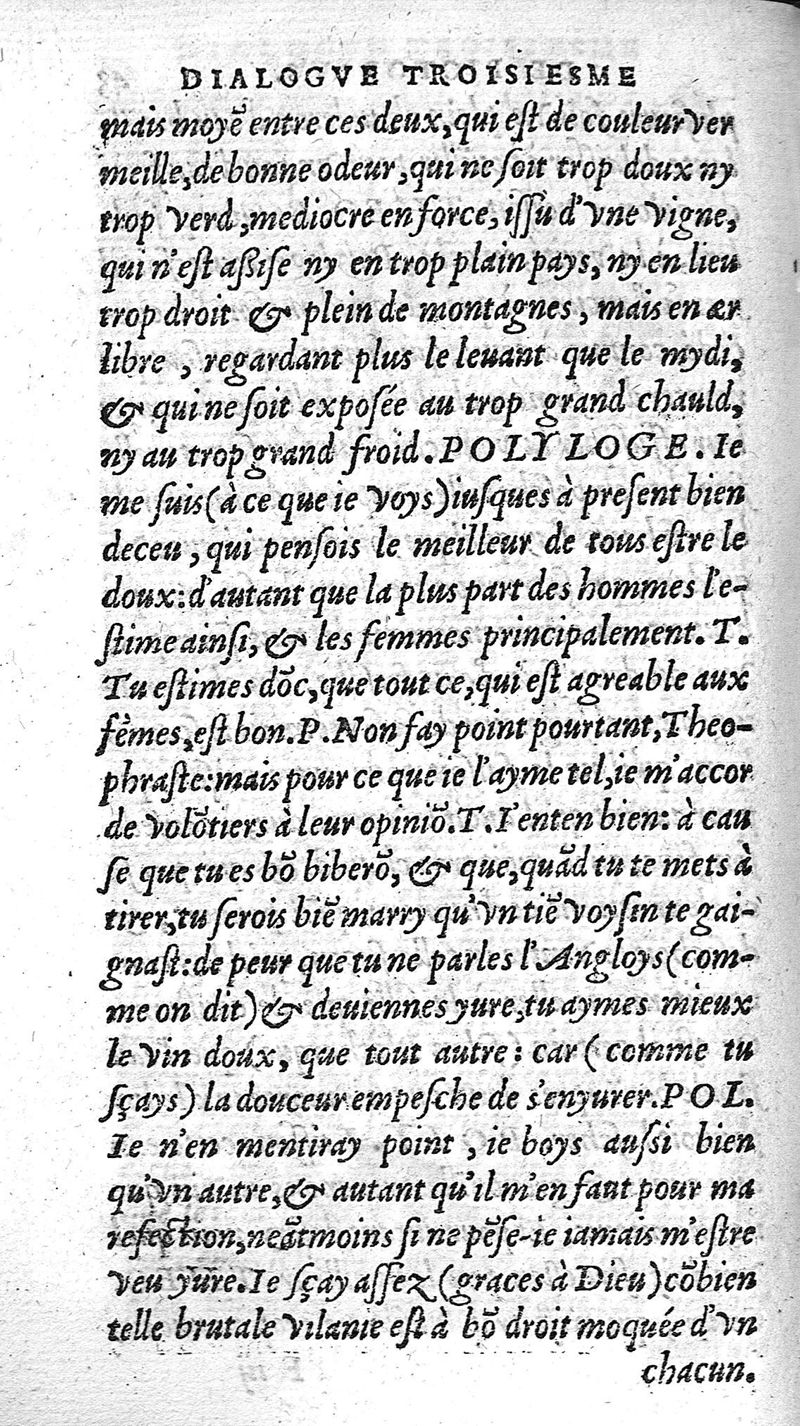 DIALOGVE TROISIESME
mais moyẽ entre ces deux, qui eſt de couleur ver
meille, de bonne odeur, qui ne ſoit trop doux ny
trop verd, mediocre en force, iſſu d'vne vigne,
qui n'eſt aßiſe ny en trop plain pays, ny en lieu
trop droit & plein de montagnes, mais en ær
libre, regardant plus le leuant que le mydi,
& qui ne ſoit expoſée au trop grand chauld,
ny au trop grand froid. POLYLOGE. Ie
me ſuis (à ce que ie voys) iuſques à preſent bien
deceu, qui penſois le meilleur de tous eſtre le
doux: d'autant que la plus part des hommes l'e-
ſtime ainſi, & les femmes principalement. T.
Tu eſtimes dõc, que tout ce, qui eſt agreable aux
fẽmes, eſt bon. P. Non fay point pourtant, Theo-
phraſte: mais pour ce que ie l'ayme tel, ie m'accor
de volõtiers à leur opiniõ. T. I'enten bien: à cau
ſe que tu es bõ biberõ, & que, quãd tu te mets à
tirer, tu ſerois biẽ marry qu'vn tiẽ voyſin te gai-
gnaſt: de peur que tu ne parles l'Angloys (com-
me on dit) & deuiennes yure, tu aymes mieux
le vin doux, que tout autre: car (comme tu
ſçays) la douceur empeſche de s'enyurer. POL.
Ie n'en mentiray point, ie boys auſsi bien
qu'vn autre, & autant qu'il m'en faut pour ma
refection, neãtmoins ſi ne pẽſe-ie iamais m'eſtre
veu yure. Ie ſçay aſſez (graces à Dieu) cõbien
telle brutale vilanie eſt à bõ droit moquée d'vn
chacun.